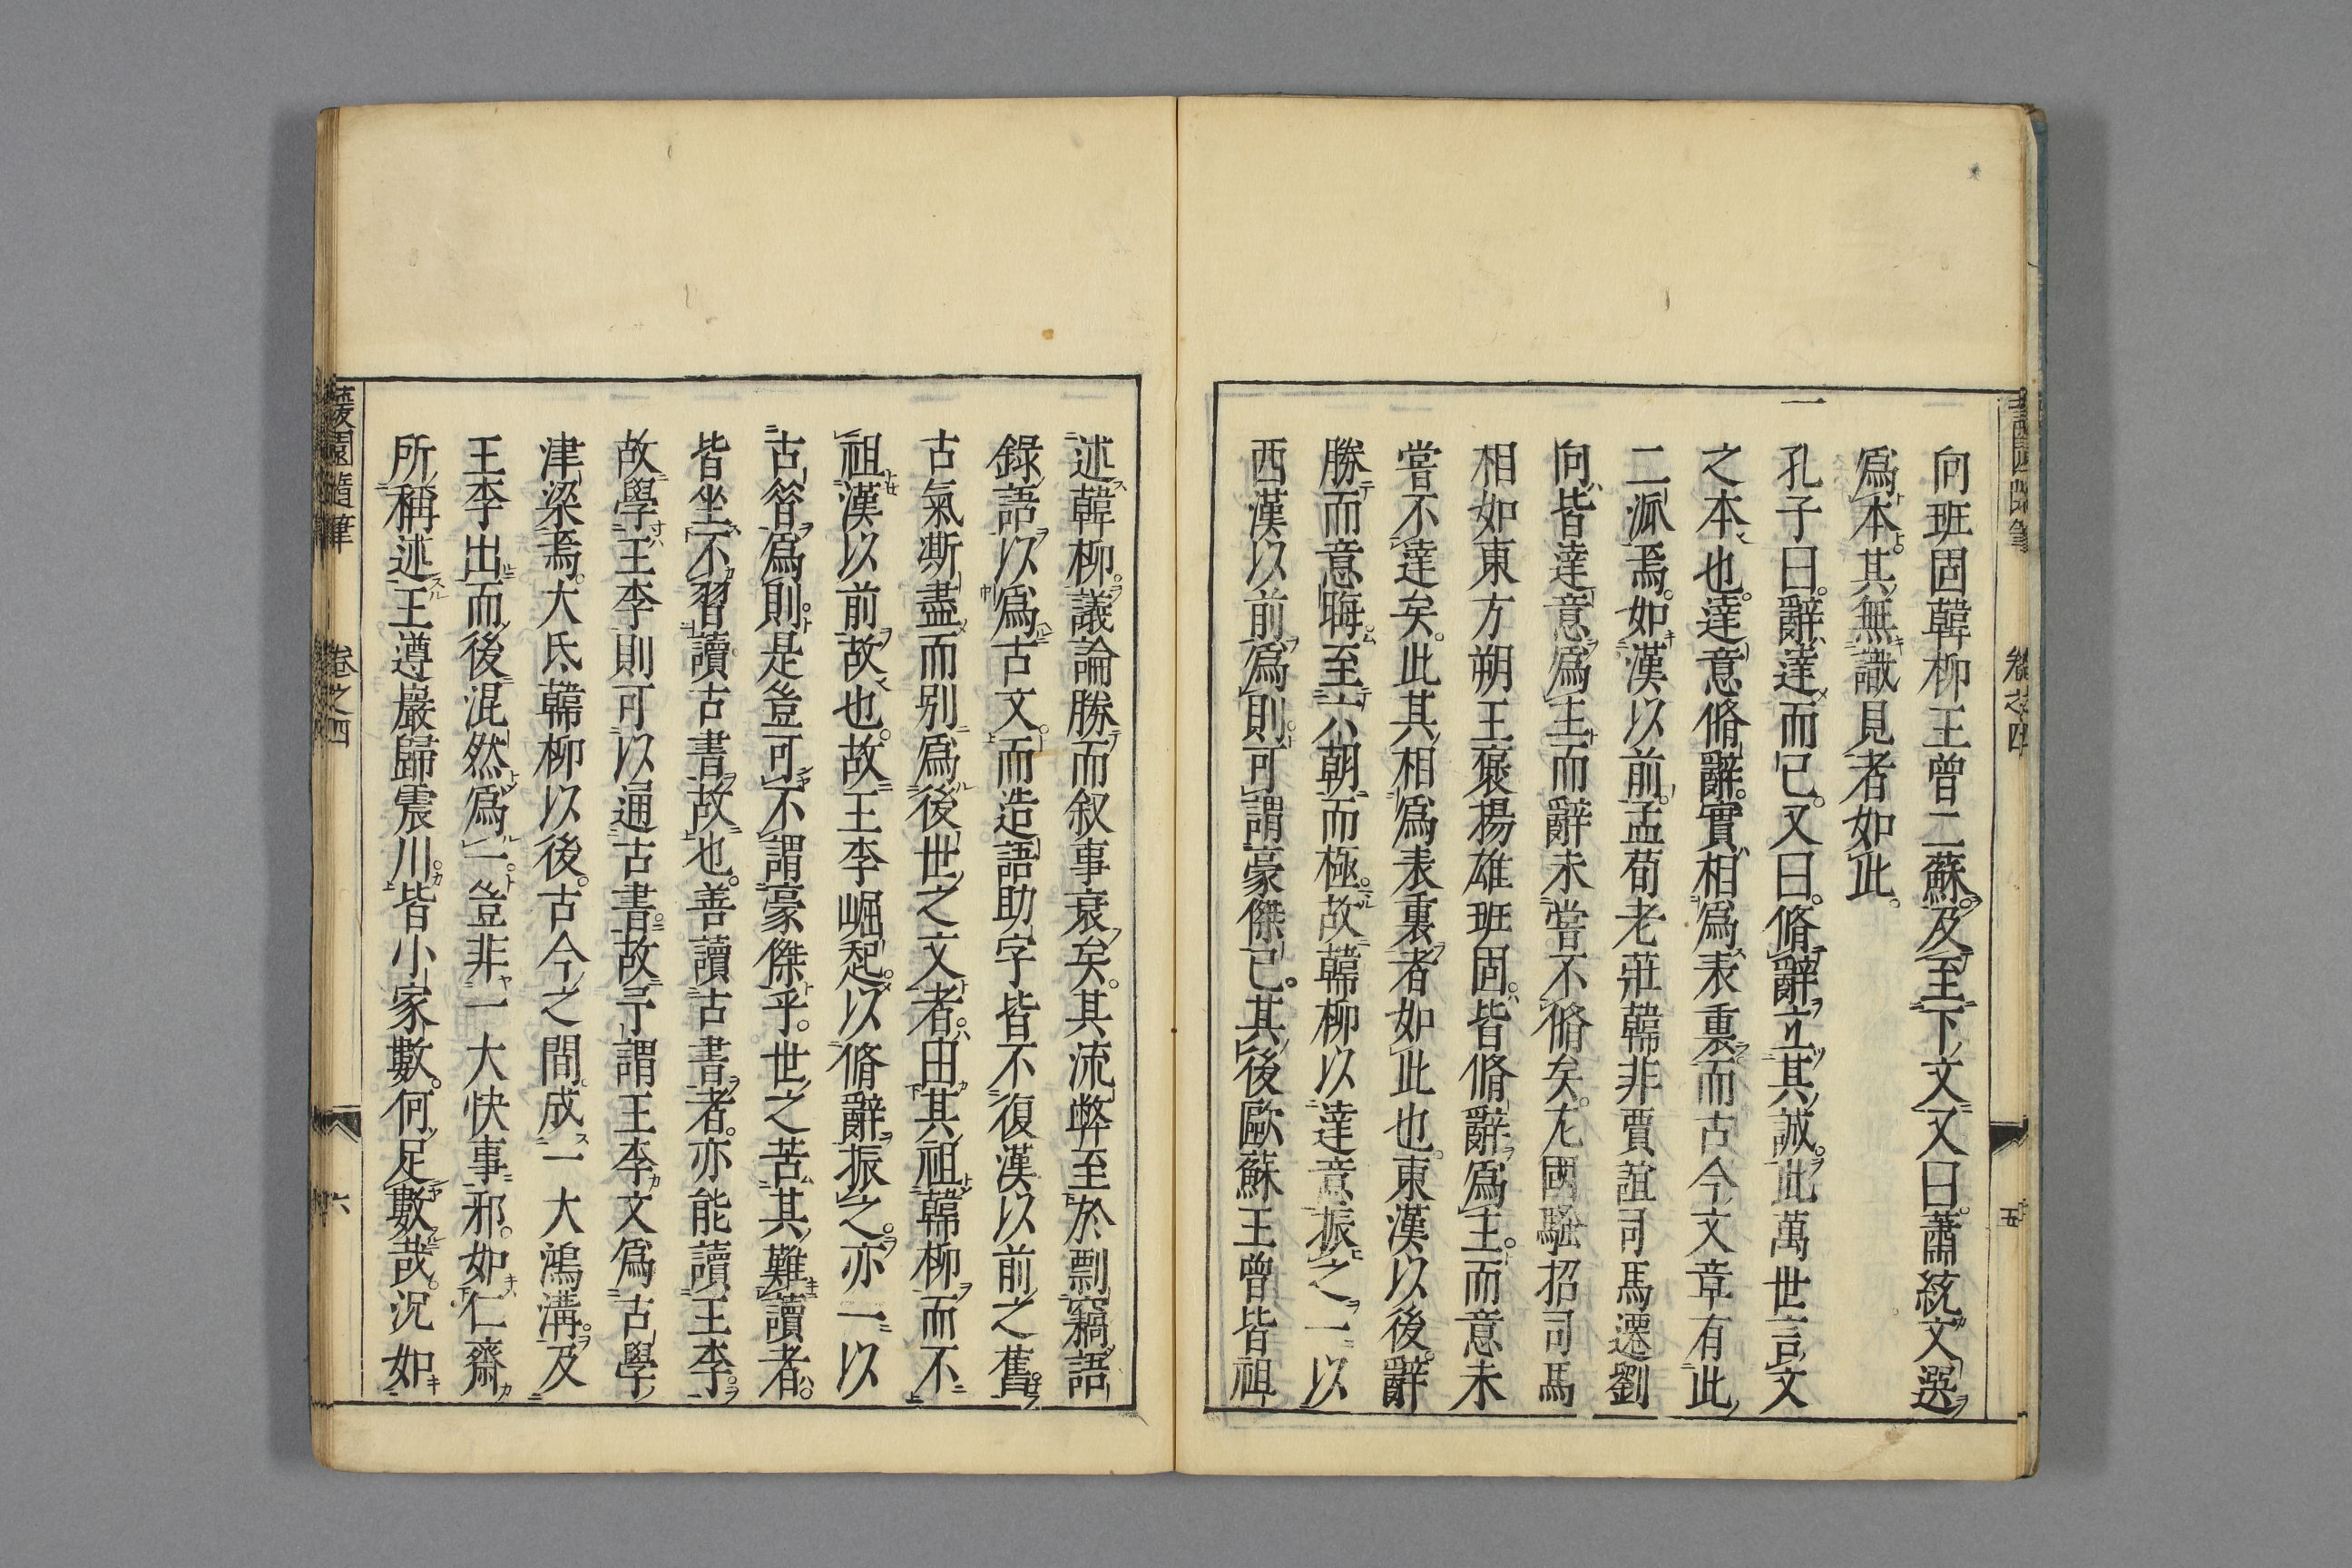 向班固韓柳王曾二蘇。及至下文又曰。蕭統文選
爲本。其無識見者如此。
一
孔子曰。辭達而已。又曰。脩辭立其誠。此萬世言文
之本也。達意脩辭。實相爲表裏。而古今文章有此
二派焉。如漢以前。孟荀老莊韓非賈誼司馬遷劉
向。皆達意爲主。而辭未嘗不脩矣。左國騷招司馬
相如東方朔王褒揚雄班固。皆脩辭爲主。而意未
嘗不達矣。此其相爲表裏者如此也。東漢以後。辭
勝而意晦。至六朝而極。故韓柳以達意振之。一以
西漢以前爲則。可謂豪傑已。其後歐蘇王曾皆祖
卷之四
五
述韓柳。議論勝而叙事衰矣。其流弊至於剽竊語
錄語以爲古文。而造語助字皆不復漢以前之舊。
古氣澌盡而別爲後世之文者。由其祖韓柳而不
祖漢以前故也。故王李崛起。以脩辭振之。亦一以
古答爲則。是豈可不謂豪傑乎。世之苦其難讀者。
皆坐不習讀古書故也。善讀古書者。亦能讀王李。
故學王李則可以通古書。故予謂王李文爲古學
津梁焉。大氐韓柳以後。古今之間。成一大鴻溝。及
王李出而後混然爲一。豈非一大快事邪。如仁齋
所稱述王遵巖歸震川。皆小家數。何足數哉。況如
蘐園隨筆
卷之四
六